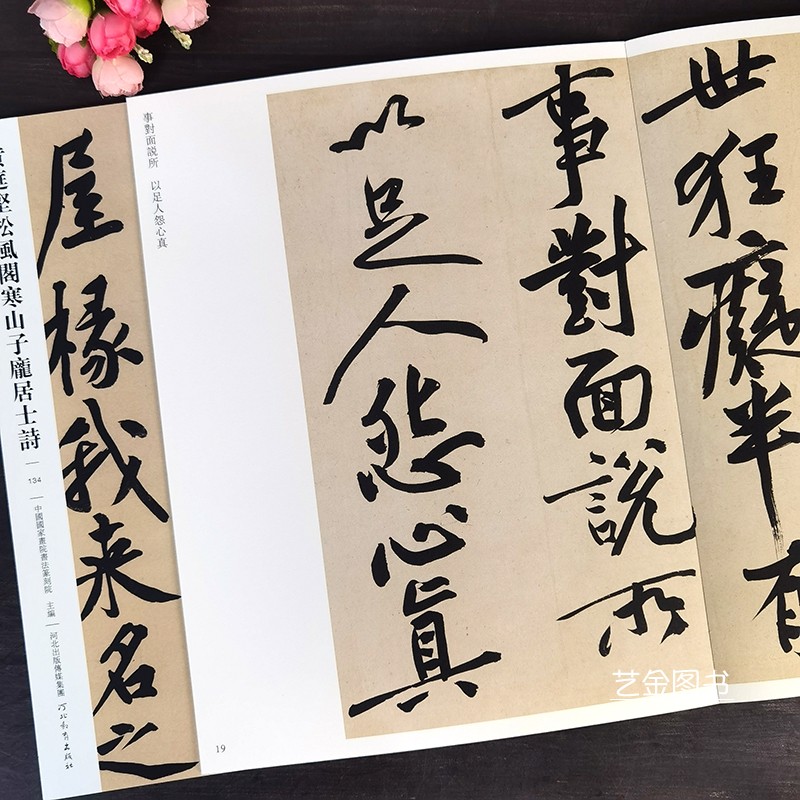 世狂癡半有
事對面說所
以足人怨心真
事對面説所 以足人怨心真
19
屋椽我来名之
黄庭堅松風閣寒山子龐居士詩
134
中國國家畫院書法篆刻院 主編
河北出版傳媒集團
河北教育出版社
艺金图书